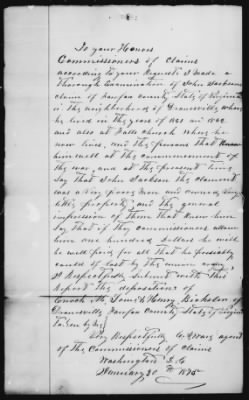 To your Honors
Commissioners of Claims
according to your Request I made a
Thorough Examination of John Jackson
claim of Fairfax County State of Virginia
in the neighborhood of Dranesville where
he lived in the years of 1861 and 1862
and also at Falls Church where he
now lives, and the persons that Knew
him well at the commencement of
the war, and at the present time
say that John Jackson the claimant
was a very poor man and owned very
little property, and the general
impression of them that Knew him
say that if they commissioners allow
him one hundred Dollars he will
be well paid for all that he possibly
could of lost by the union army
I Respectfully Submit with this
Report the depositions of
Enoch & Henry Bicksler of
Dranesville Fairfax County State of Virginia
Taken by me
Very Respectfully agent
of the Commissioners of claims
Washington D.C
January 30th 1875